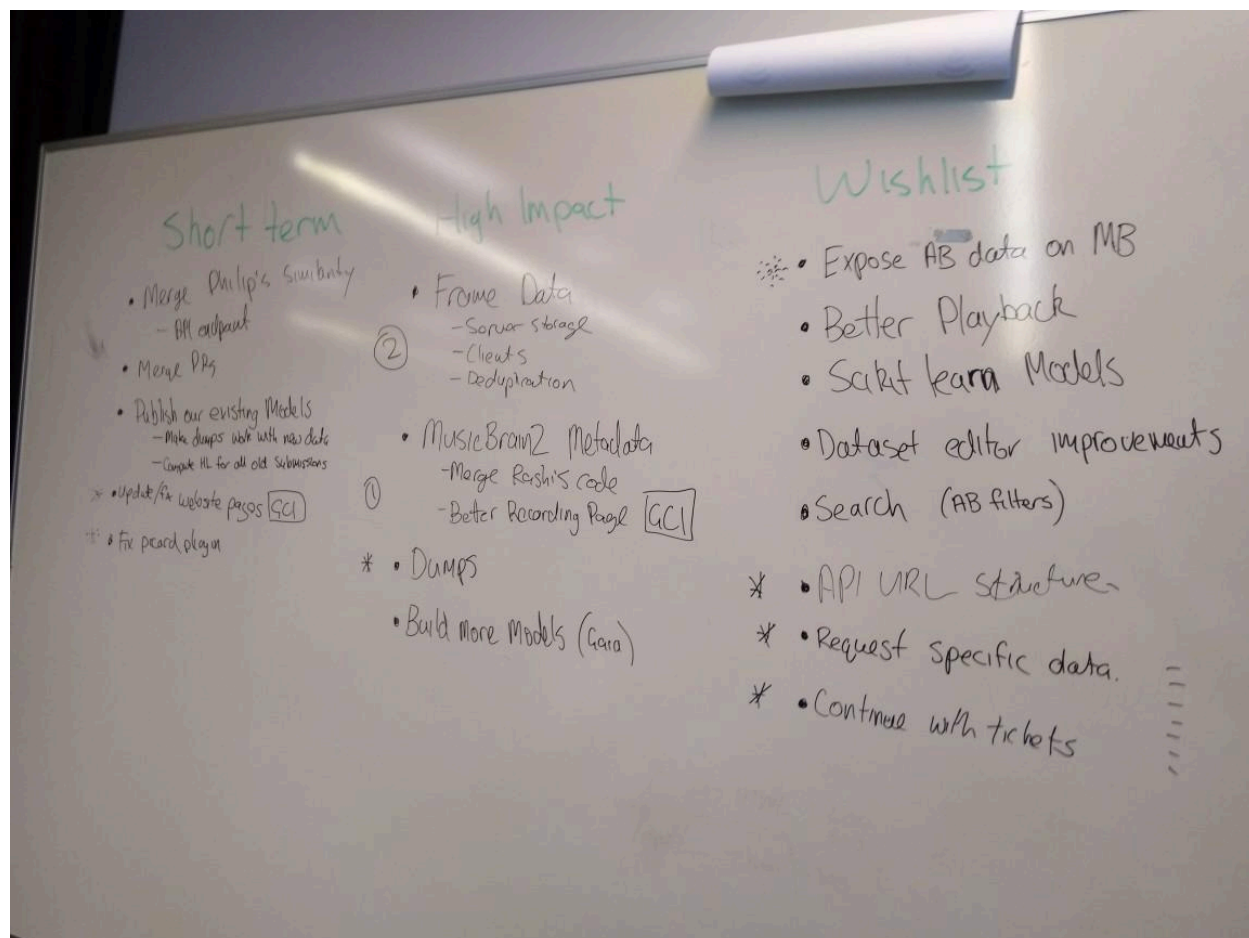 Short term
• Merge Philip's Similarity
- API endpoint
• Merge PRs
• Publish our existing Models
- Make dumps work with new data
- Compute HL for all old Submissions
* • Update/fix website pages GCI
* • Fix picard plugin
High Impact
• Frame Data
② - Server storage
- Clients
- Deduplication
• MusicBrainz Metadata
① - Merge Rashi's code
- Better Recording Page GCI
* • Dumps
• Build more Models
Wishlist
• Expose AB data on MB
• Better Playback
• Scikit learn Models
• Dataset editor improvements
• Search (AB filters)
* • API URL structure
* • Request specific data.
* • Continue with tickets